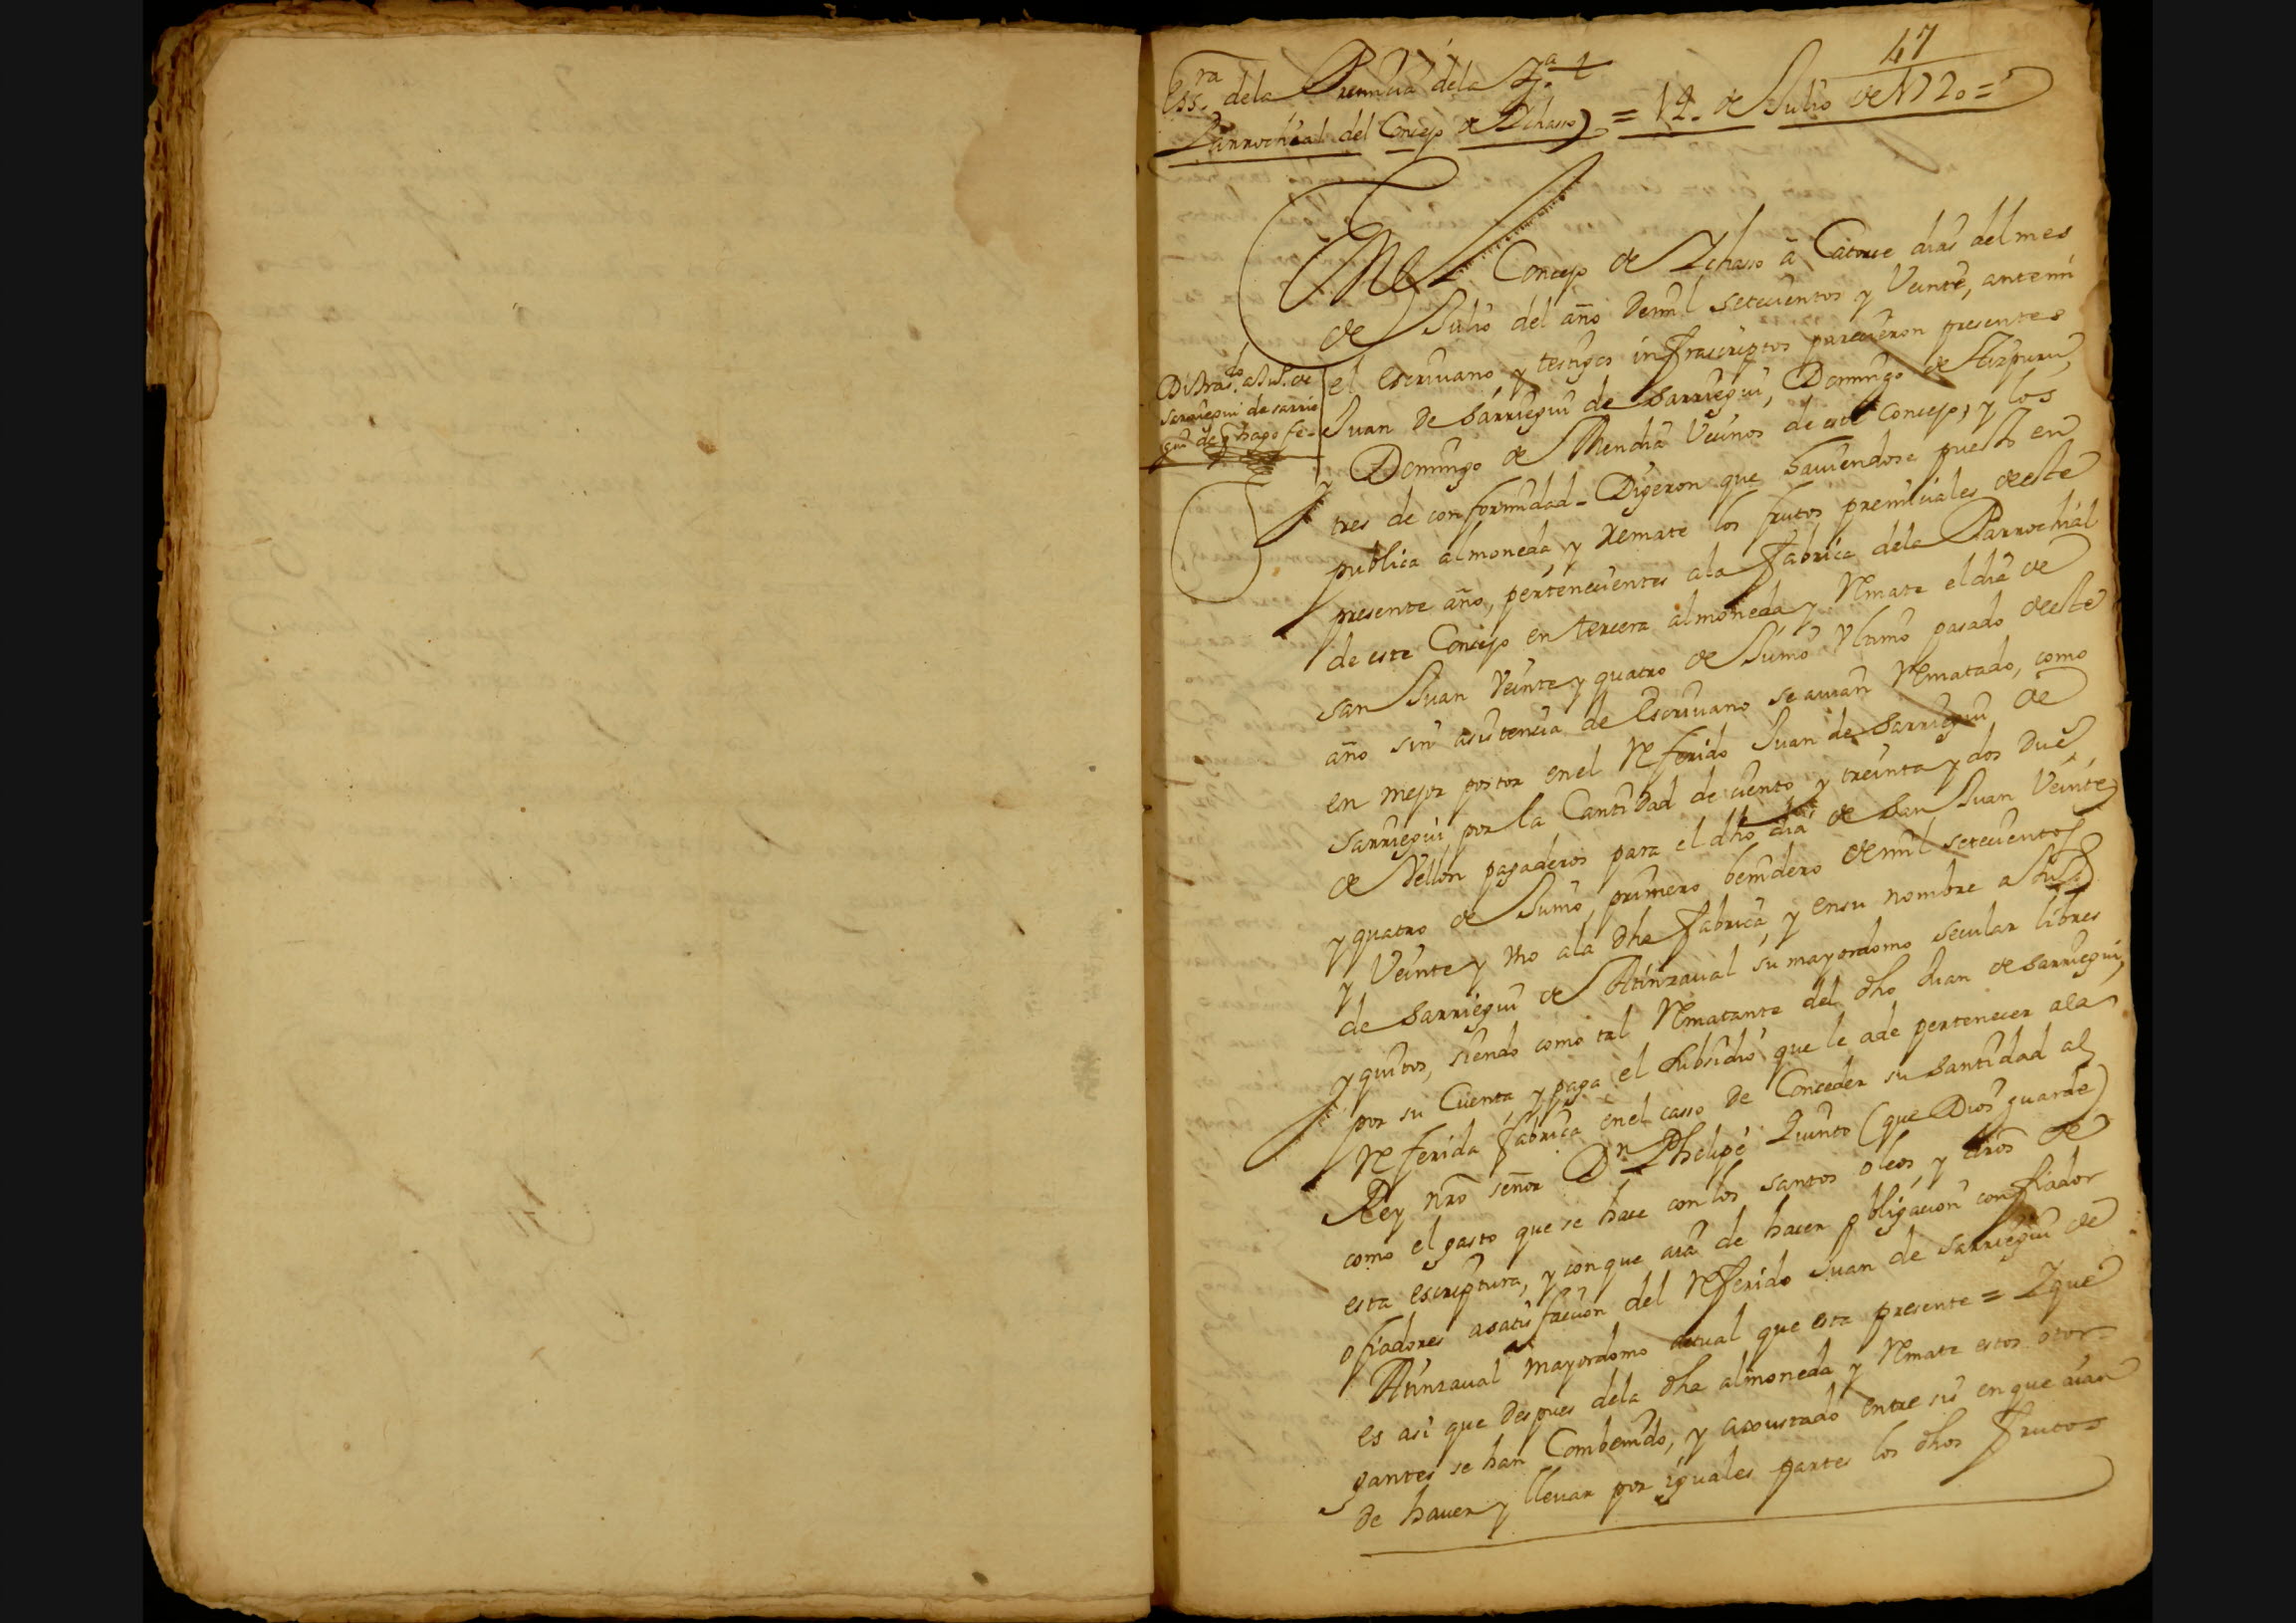 47
Ess.ra dela Premicia dela Ig.a
Parrochial del Concejo de Ichasso = 14. de Julio de 1720 =
En el Concejo de Ichasso â Catorce dias del mes
de Julio del año demil setecientos y Veinte, antemi
el escriuano y testigos infraescriptos parecieron presentes
Juan de sarriegui de sarriegui, Domingo de Aizpuru,
y Domingo de Mendia Vecinos de este Concejo, y los
tres de conformidad = Digeron que hauiendose puesto en
publica almoneda, y remate los frutos premiciales deeste
presente año, pertenecientes ala fabrica dela Parrochial
de este Concejo en tercera almoneda y Remate el dia de
san Juan Veinte y quatro de Junio Vltimo pasado deeste
año sin asistencia de Escriuano se auian Rematado, como
en mejor postor en el Referido Juan de sarriegui de
sarriegui por la Cantidad de ciento y treinta y dos du.s
de Vellon pagaderos para el dho dia de san Juan Veinte
y quatro de Junio primero benidero de mil setecientos
y Veinte y vno ala dha fabrica, y en su nombre a Juan
de sarriegui de Atinzaual su mayordomo secular libres
y quitos, siendo como tal Rematante del dho Juan de sarriegui,
por su Cuenta y paga el subsidio que le ade pertenecer ala
Referida fabrica en el casso de Conceder su santidad al
Rey nrõ señor Dn Phelipe Quinto (que Dios guarde)
como el gasto que se hace con los santos oleos, y drõs de
esta escriptura, y con que aia de hacer obligacion con fiador
o fiadores asatisfacion del Referido Juan de sarriegui de
Atinzaual mayordomo actual que esta presente = Y que
es asi que despues dela dha almoneda y Remate estos otor-
gantes se han Combenido, y ajoustado entre sis en que aian
de hauer y lleuar por iguales partes los dhos frutos
Di tras.do a Ju.o de
sarriegui de sarrie
gui de q hago fe =